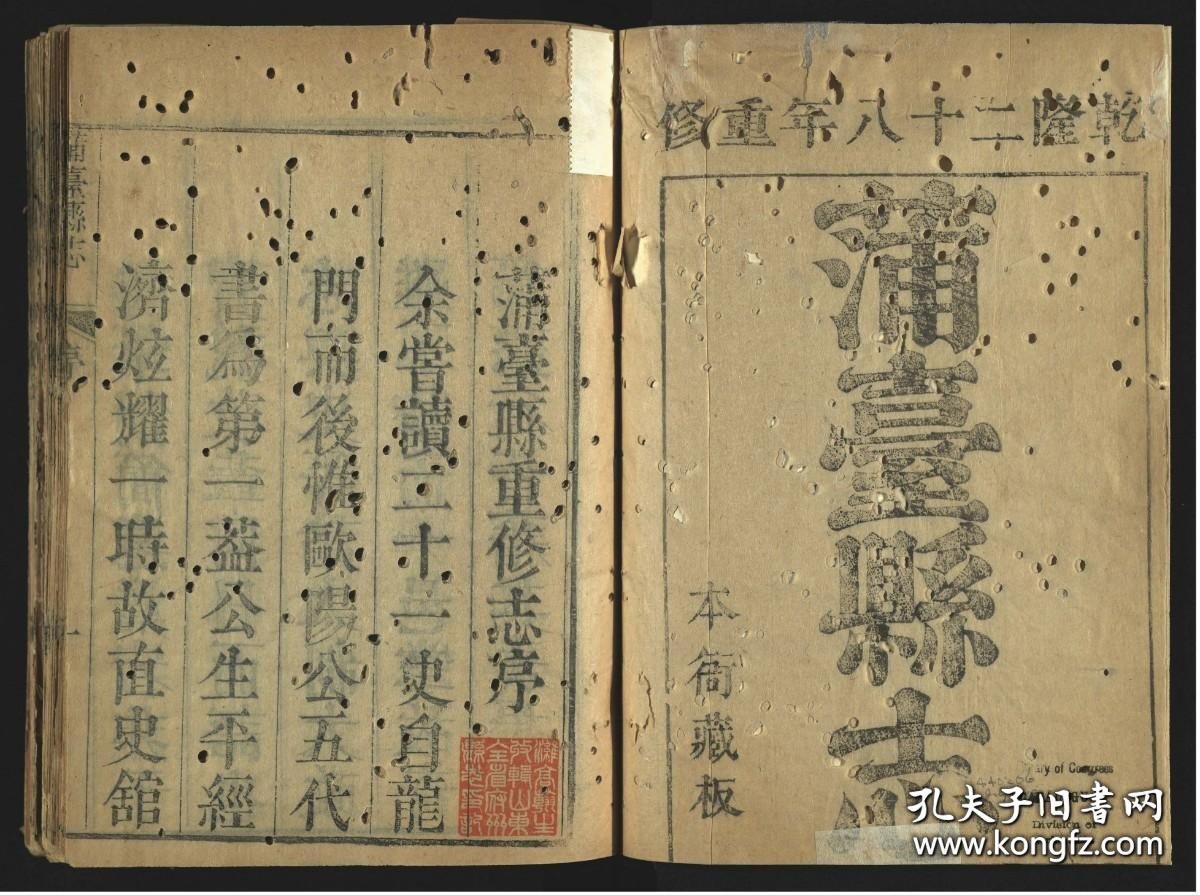 乾隆二十八年重修
蒲臺縣志
本衙藏板
蒲臺縣重修志序
余嘗讀二十一史自龍
門而後惟歐陽公五代
書為第一葢公生平經
濟炫耀一時故直史舘
蒲臺縣志
序
一
濰高鴻裁
攷輯山東
全省府州
縣志印記
Library of Congress
Division of
孔夫子旧书网
www.kongfz.com